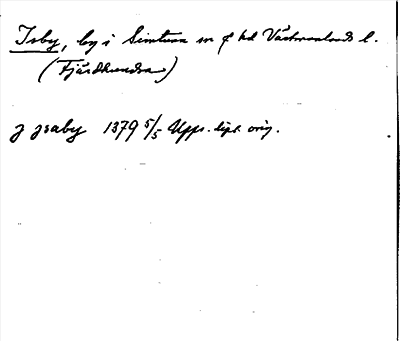 Isby, by i Simtuna sn o hd Västmanlands l.
(Fjärdhundra)
j jsaby 1379 5/5 Upps. dipl. orig.